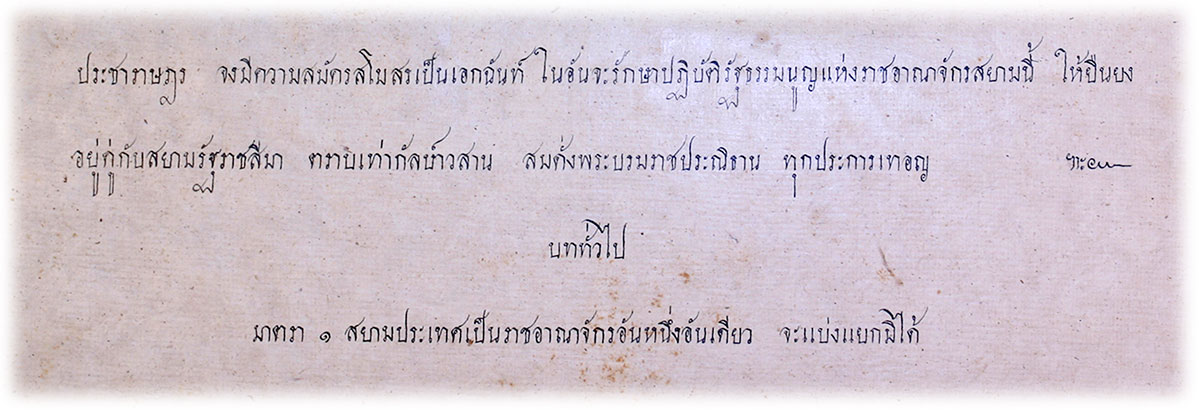 ประชาราษฎร จงมีความสมัครสโมสรเป็นเอกฉันท์ ในอันจะรักษาปฏิบัติรัฐธรรมนูญแห่งราชอาณาจักรสยามนี้ ให้ยืนยง
อยู่คู่กับสยามรัฐราชสีมา ตราบเท่ากัลปาวสาน สมดั่งพระบรมราชประณิธาน ทุกประการเทอญ
บททั่วไป
มาตรา ๑ สยามประเทศเป็นราชอาณาจักรอันหนึ่งอันเดียว จะแบ่งแยกมิได้